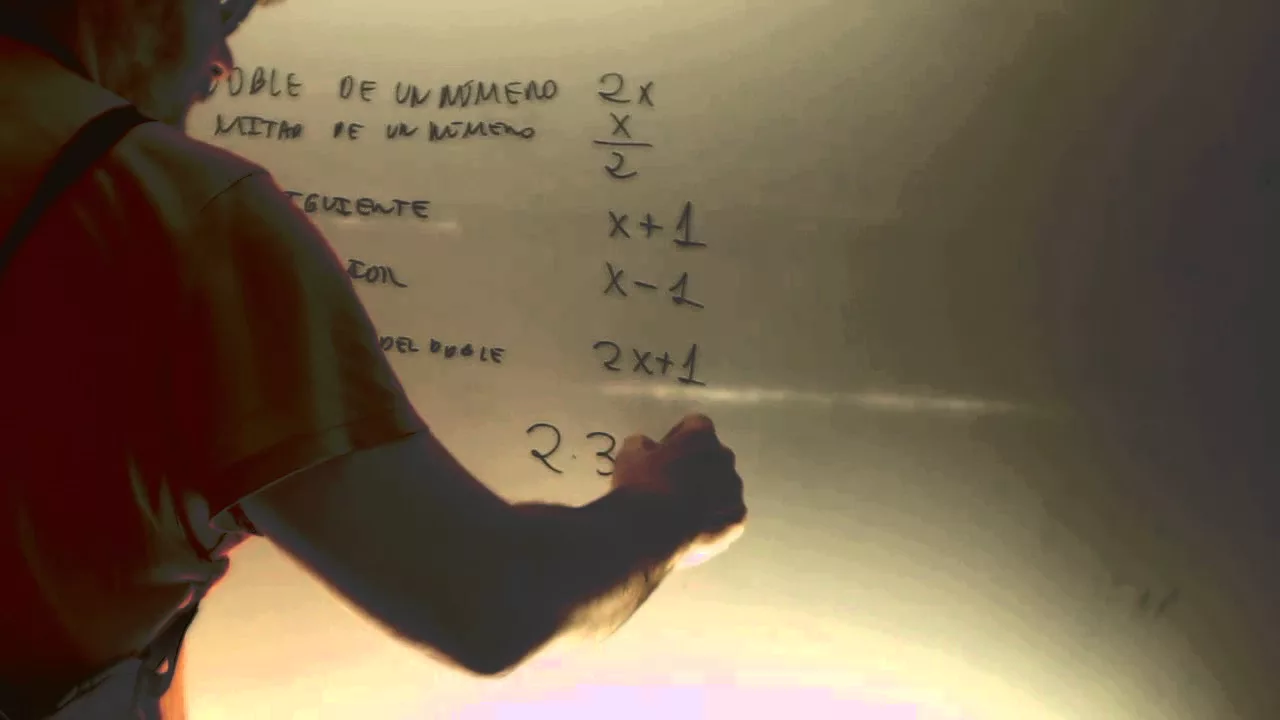 DOBLE DE UN NÚMERO 2x
MITAD DE UN NÚMERO x/2
IGUIENTE x+1
IOR x-1
DEL DOBLE 2x+1
2·3